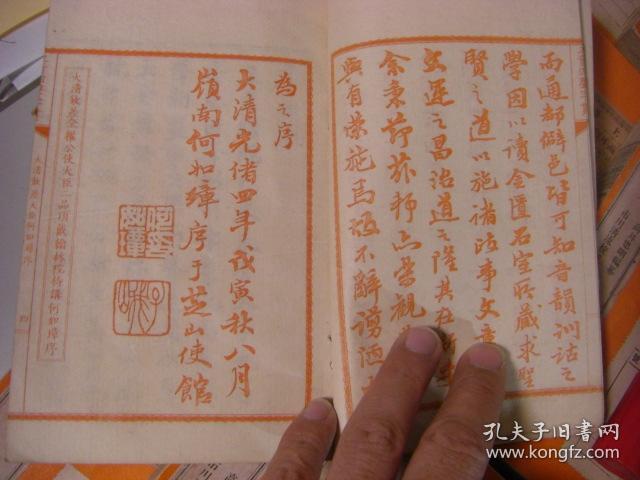 而通都僻邑皆可知音韻訓詁之
學因以讀金匱石室所藏求聖
賢之道以施諸政事文
文運之昌治道之隆其在
余秉節茲邦亦嘗觀
與有榮施焉故不辭謭陋
為之序
大清光緒四年戊寅秋八月
嶺南何如璋序于芝山使館
大清欽差全權公使大臣二品頂戴翰林院侍講何如璋序
孔夫子旧书网
KONGFZ.COM